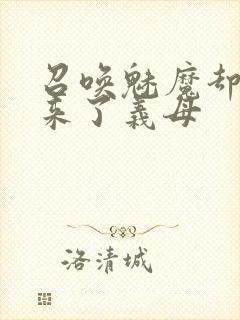 召唤魅魔却
来了義母
洛清城